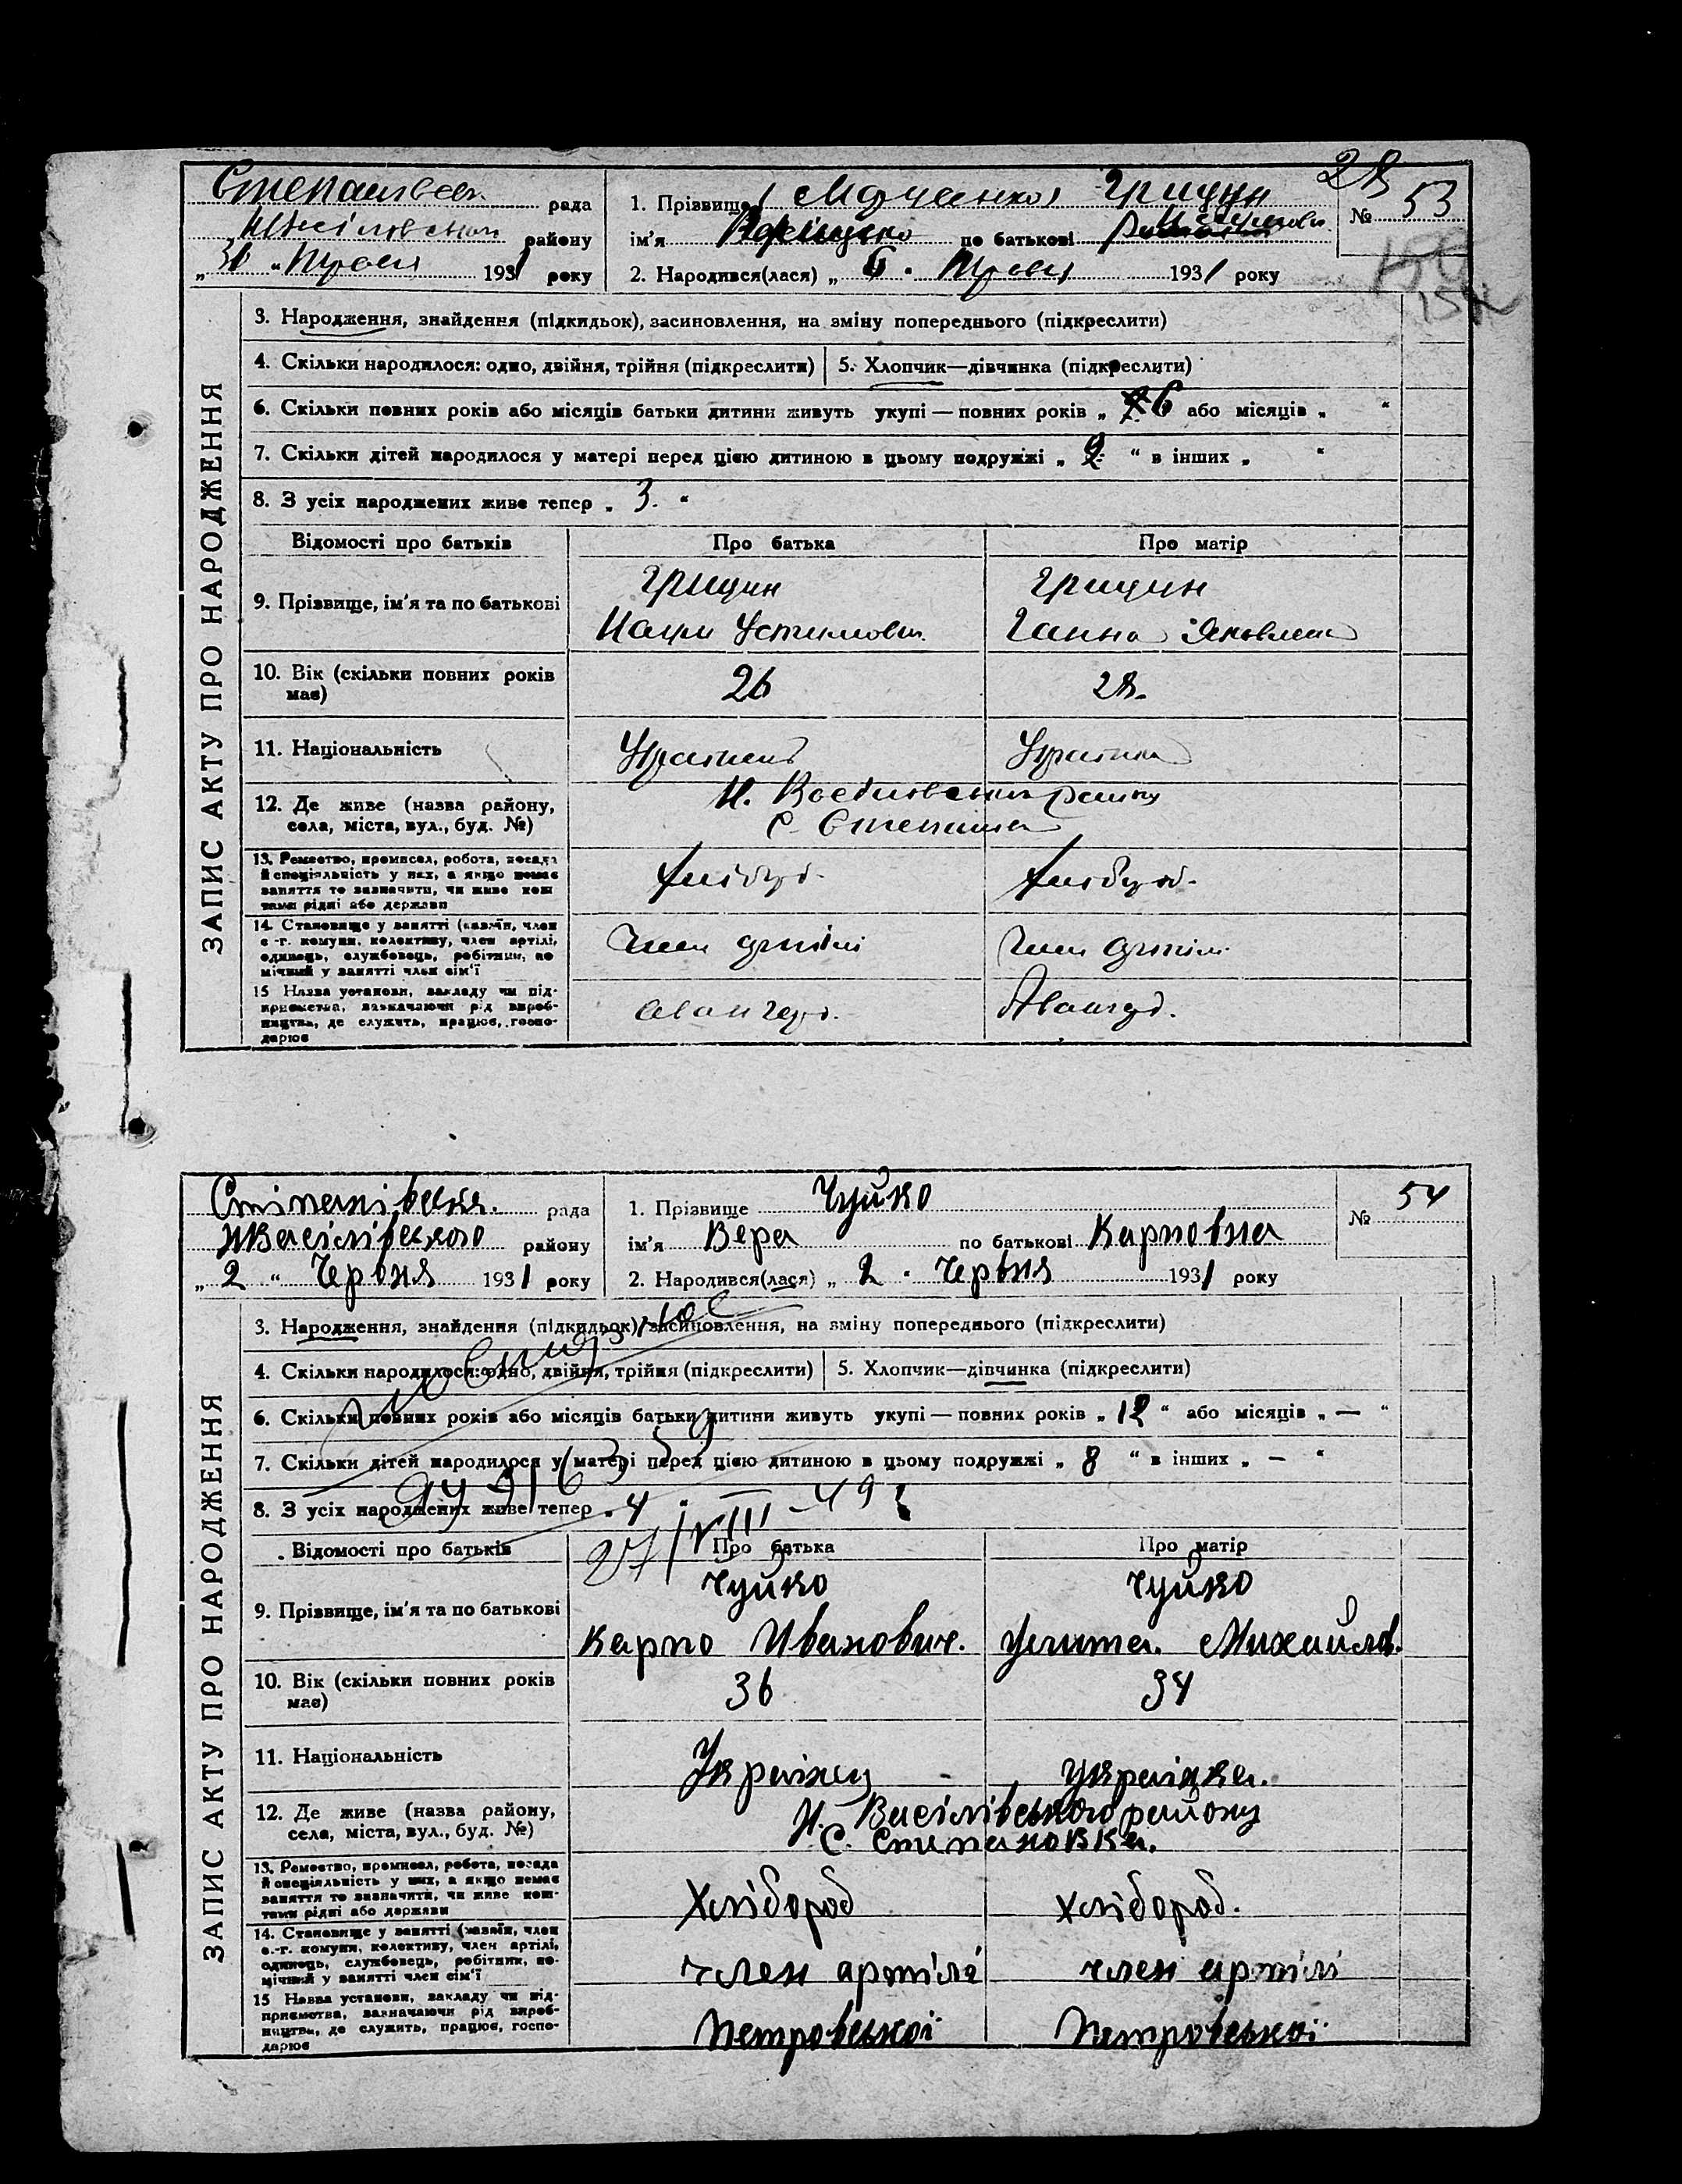 28
рада
1. Прізвище (Марченко) Грицун
№ 53
району
ім'я по батькові
„31“ Травня 1931 року
2. Народився(лася) „6“ Травня 1931 року
ЗАПИС АКТУ ПРО НАРОДЖЕННЯ
3. Народження, знайдення (підкидьок), засиновлення, на зміну попереднього (підкреслити)
4. Скільки народилося: одно, двійня, трійня (підкреслити) 5. Хлопчик—дівчинка (підкреслити)
6. Скільки повних років або місяців батьки дитини живуть укупі — повних років „6 або місяців „ “
7. Скільки дітей народилося у матері перед цією дитиною в цьому подружжі „2“ в інших „ “
8. З усіх народжених живе тепер „3.“
Відомості про батьків Про батька Про матір
9. Прізвище, ім'я та по батькові
Грицун Грицун
Устимович Ганна Яковлевна
10. Вік (скільки повних років має) 26 28.
11. Національність
12. Де живе (назва району, села, міста, вул., буд. №)
13. Ремество, промисел, робота, посада й спеціяльність у них, а якщо немає заняття то зазначити, чи живе коштами рідні або держави
14. Становище у занятті (хазяїн, член с.-г. комуни, колективу, член артілі, одинець, службовець, робітник, помічний у занятті член сім'ї
член артілі член артілі
15 Назва установи, закладу чи підприємства, зазначаючи рід виробництва, де служить, працює, господарює
Авангард. Авангард.
Степанівська. рада
1. Прізвище Чуйко
№ 54
НВасілівського району
ім'я Вера по батькові Карповна
„2“ Червня 1931 року
2. Народився(лася) „2“ Червня 1931 року
ЗАПИС АКТУ ПРО НАРОДЖЕННЯ
3. Народження, знайдення (підкидьок), засиновлення, на зміну попереднього (підкреслити)
4. Скільки народилося: одно, двійня, трійня (підкреслити) 5. Хлопчик—дівчинка (підкреслити)
6. Скільки повних років або місяців батьки дитини живуть укупі — повних років „12“ або місяців „—“
7. Скільки дітей народилося у матері перед цією дитиною в цьому подружжі „8“ в інших „—“
8. З усіх народжених живе тепер „4“
27/VIII-49
Відомості про батьків Про батька Про матір
9. Прізвище, ім'я та по батькові
Чуйко Чуйко
Карпо Иванович. Улита. Михайлов.
10. Вік (скільки повних років має) 36 34
11. Національність Українц Українка.
12. Де живе (назва району, села, міста, вул., буд. №)
Н. Васілівського району
С. Степановка.
13. Ремество, промисел, робота, посада й спеціяльність у них, а якщо немає заняття то зазначити, чи живе коштами рідні або держави
Хлібороб хлібороб.
14. Становище у занятті (хазяїн, член с.-г. комуни, колективу, член артілі, одинець, службовець, робітник, помічний у занятті член сім'ї
член артілі член артілі
15 Назва установи, закладу чи підприємства, зазначаючи рід виробництва, де служить, працює, господарює
Петровської Петровської